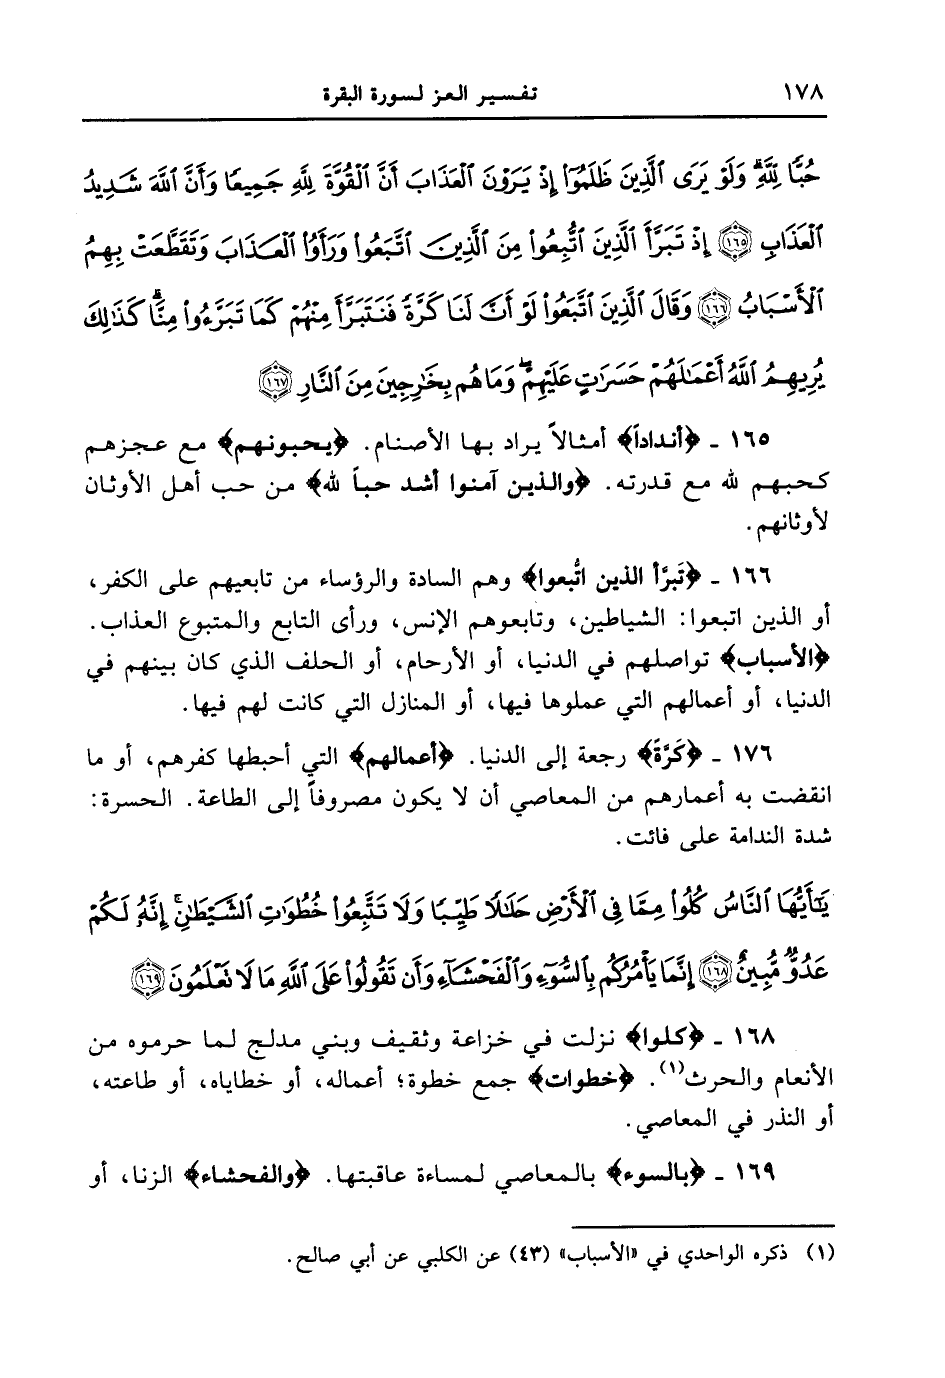 ١٧٨
تفسير العز لسورة البقرة
حُبًّا لِّلَّهِ ۗ وَلَوْ يَرَى ٱلَّذِينَ ظَلَمُوٓا۟ إِذْ يَرَوْنَ ٱلْعَذَابَ أَنَّ ٱلْقُوَّةَ لِلَّهِ جَمِيعًا وَأَنَّ ٱللَّهَ شَدِيدُ
ٱلْعَذَابِ ١٦٥ إِذْ تَبَرَّأَ ٱلَّذِينَ ٱتُّبِعُوا۟ مِنَ ٱلَّذِينَ ٱتَّبَعُوا۟ وَرَأَوُا۟ ٱلْعَذَابَ وَتَقَطَّعَتْ بِهِمُ
ٱلْأَسْبَابُ ١٦٦ وَقَالَ ٱلَّذِينَ ٱتَّبَعُوا۟ لَوْ أَنَّ لَنَا كَرَّةً فَنَتَبَرَّأَ مِنْهُمْ كَمَا تَبَرَّءُوا۟ مِنَّا ۗ كَذَٰلِكَ
يُرِيهِمُ ٱللَّهُ أَعْمَـٰلَهُمْ حَسَرَٰتٍ عَلَيْهِمْ ۖ وَمَا هُم بِخَـٰرِجِينَ مِنَ ٱلنَّارِ ١٦٧
١٦٥ ـ ﴿أنداداً﴾ أمثالاً يراد بها الأصنام. ﴿يحبونهم﴾ مع عجزهم
كحبهم لله مع قدرته. ﴿والذين آمنوا أشد حباً لله﴾ من حب أهل الأوثان
لأوثانهم.
١٦٦ ـ ﴿تَبرَّأ الذين اتُّبعوا﴾ وهم السادة والرؤساء من تابعيهم على الكفر،
أو الذين اتبعوا: الشياطين، وتابعوهم الإنس، ورأى التابع والمتبوع العذاب.
﴿الأسباب﴾ تواصلهم في الدنيا، أو الأرحام، أو الحلف الذي كان بينهم في
الدنيا، أو أعمالهم التي عملوها فيها، أو المنازل التي كانت لهم فيها.
١٧٦ ـ ﴿كَرَّةً﴾ رجعة إلى الدنيا. ﴿أعمالهم﴾ التي أحبطها كفرهم، أو ما
انقضت به أعمارهم من المعاصي أن لا يكون مصروفاً إلى الطاعة. الحسرة:
شدة الندامة على فائت.
يَـٰٓأَيُّهَا ٱلنَّاسُ كُلُوا۟ مِمَّا فِى ٱلْأَرْضِ حَلَـٰلًا طَيِّبًا وَلَا تَتَّبِعُوا۟ خُطُوَٰتِ ٱلشَّيْطَـٰنِ ۚ إِنَّهُۥ لَكُمْ
عَدُوٌّ مُّبِينٌ ١٦٨ إِنَّمَا يَأْمُرُكُم بِٱلسُّوٓءِ وَٱلْفَحْشَآءِ وَأَن تَقُولُوا۟ عَلَى ٱللَّهِ مَا لَا تَعْلَمُونَ ١٦٩
١٦٨ ـ ﴿كلوا﴾ نزلت في خزاعة وثقيف وبني مدلج لما حرموه من
الأنعام والحرث(١). ﴿خطوات﴾ جمع خطوة؛ أعماله، أو خطاياه، أو طاعته،
أو النذر في المعاصي.
١٦٩ ـ ﴿بالسوء﴾ بالمعاصي لمساءة عاقبتها. ﴿والفحشاء﴾ الزنا، أو
(١) ذكره الواحدي في «الأسباب» (٤٣) عن الكلبي عن أبي صالح.